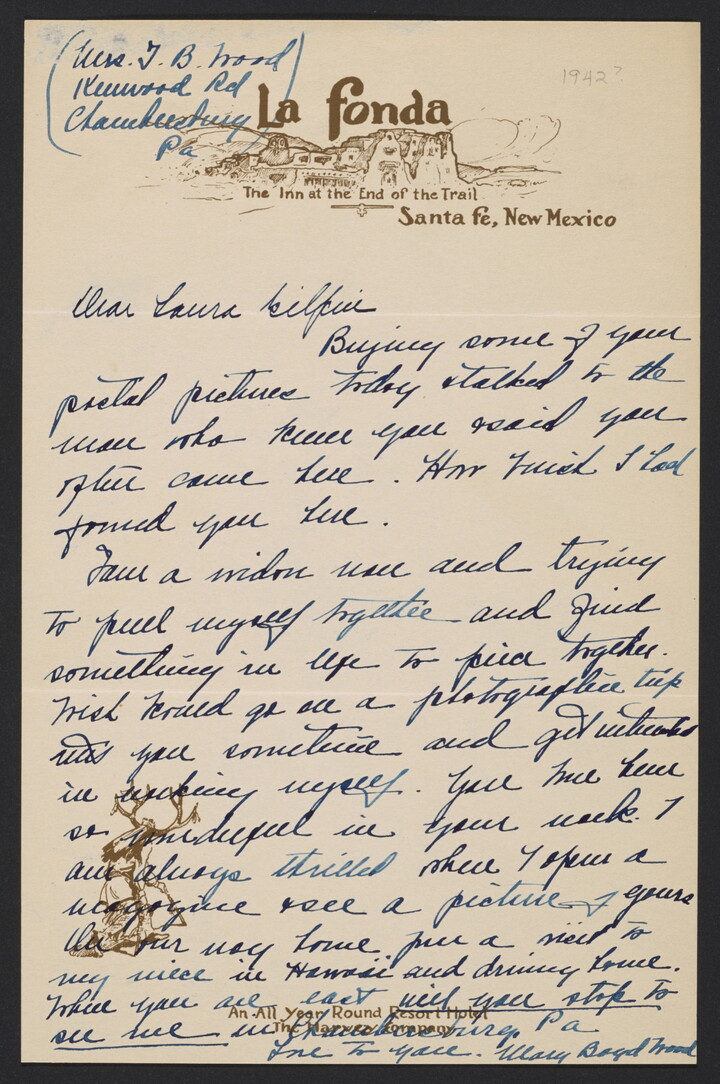 (Mrs. T. B. Wood)
Kenwood Rd
Chambersburg
Pa
1942?
La fonda
The Inn at the End of the Trail
Santa fe, New Mexico
Dear Laura Gilpin
Buying some of your
postal pictures today & talked to the
man who knew you & said you
often came here. How I wish I had
found you here.
I am a widow now and trying
to pull myself together and find
something in life to piece together.
Wish I could go on a photographic trip
with you sometime and get interested
in working myself. You have been
so wonderful in your work. I
am always thrilled when I open a
magazine & see a picture of yours
On our way home from a visit to
my niece in Hawaii and driving home.
When you are east will you stop to
see me in Chambersburg, Pa
An All Year Round Resort Hotel
The Harvey Company
Love to you. Mary Boyd Wood